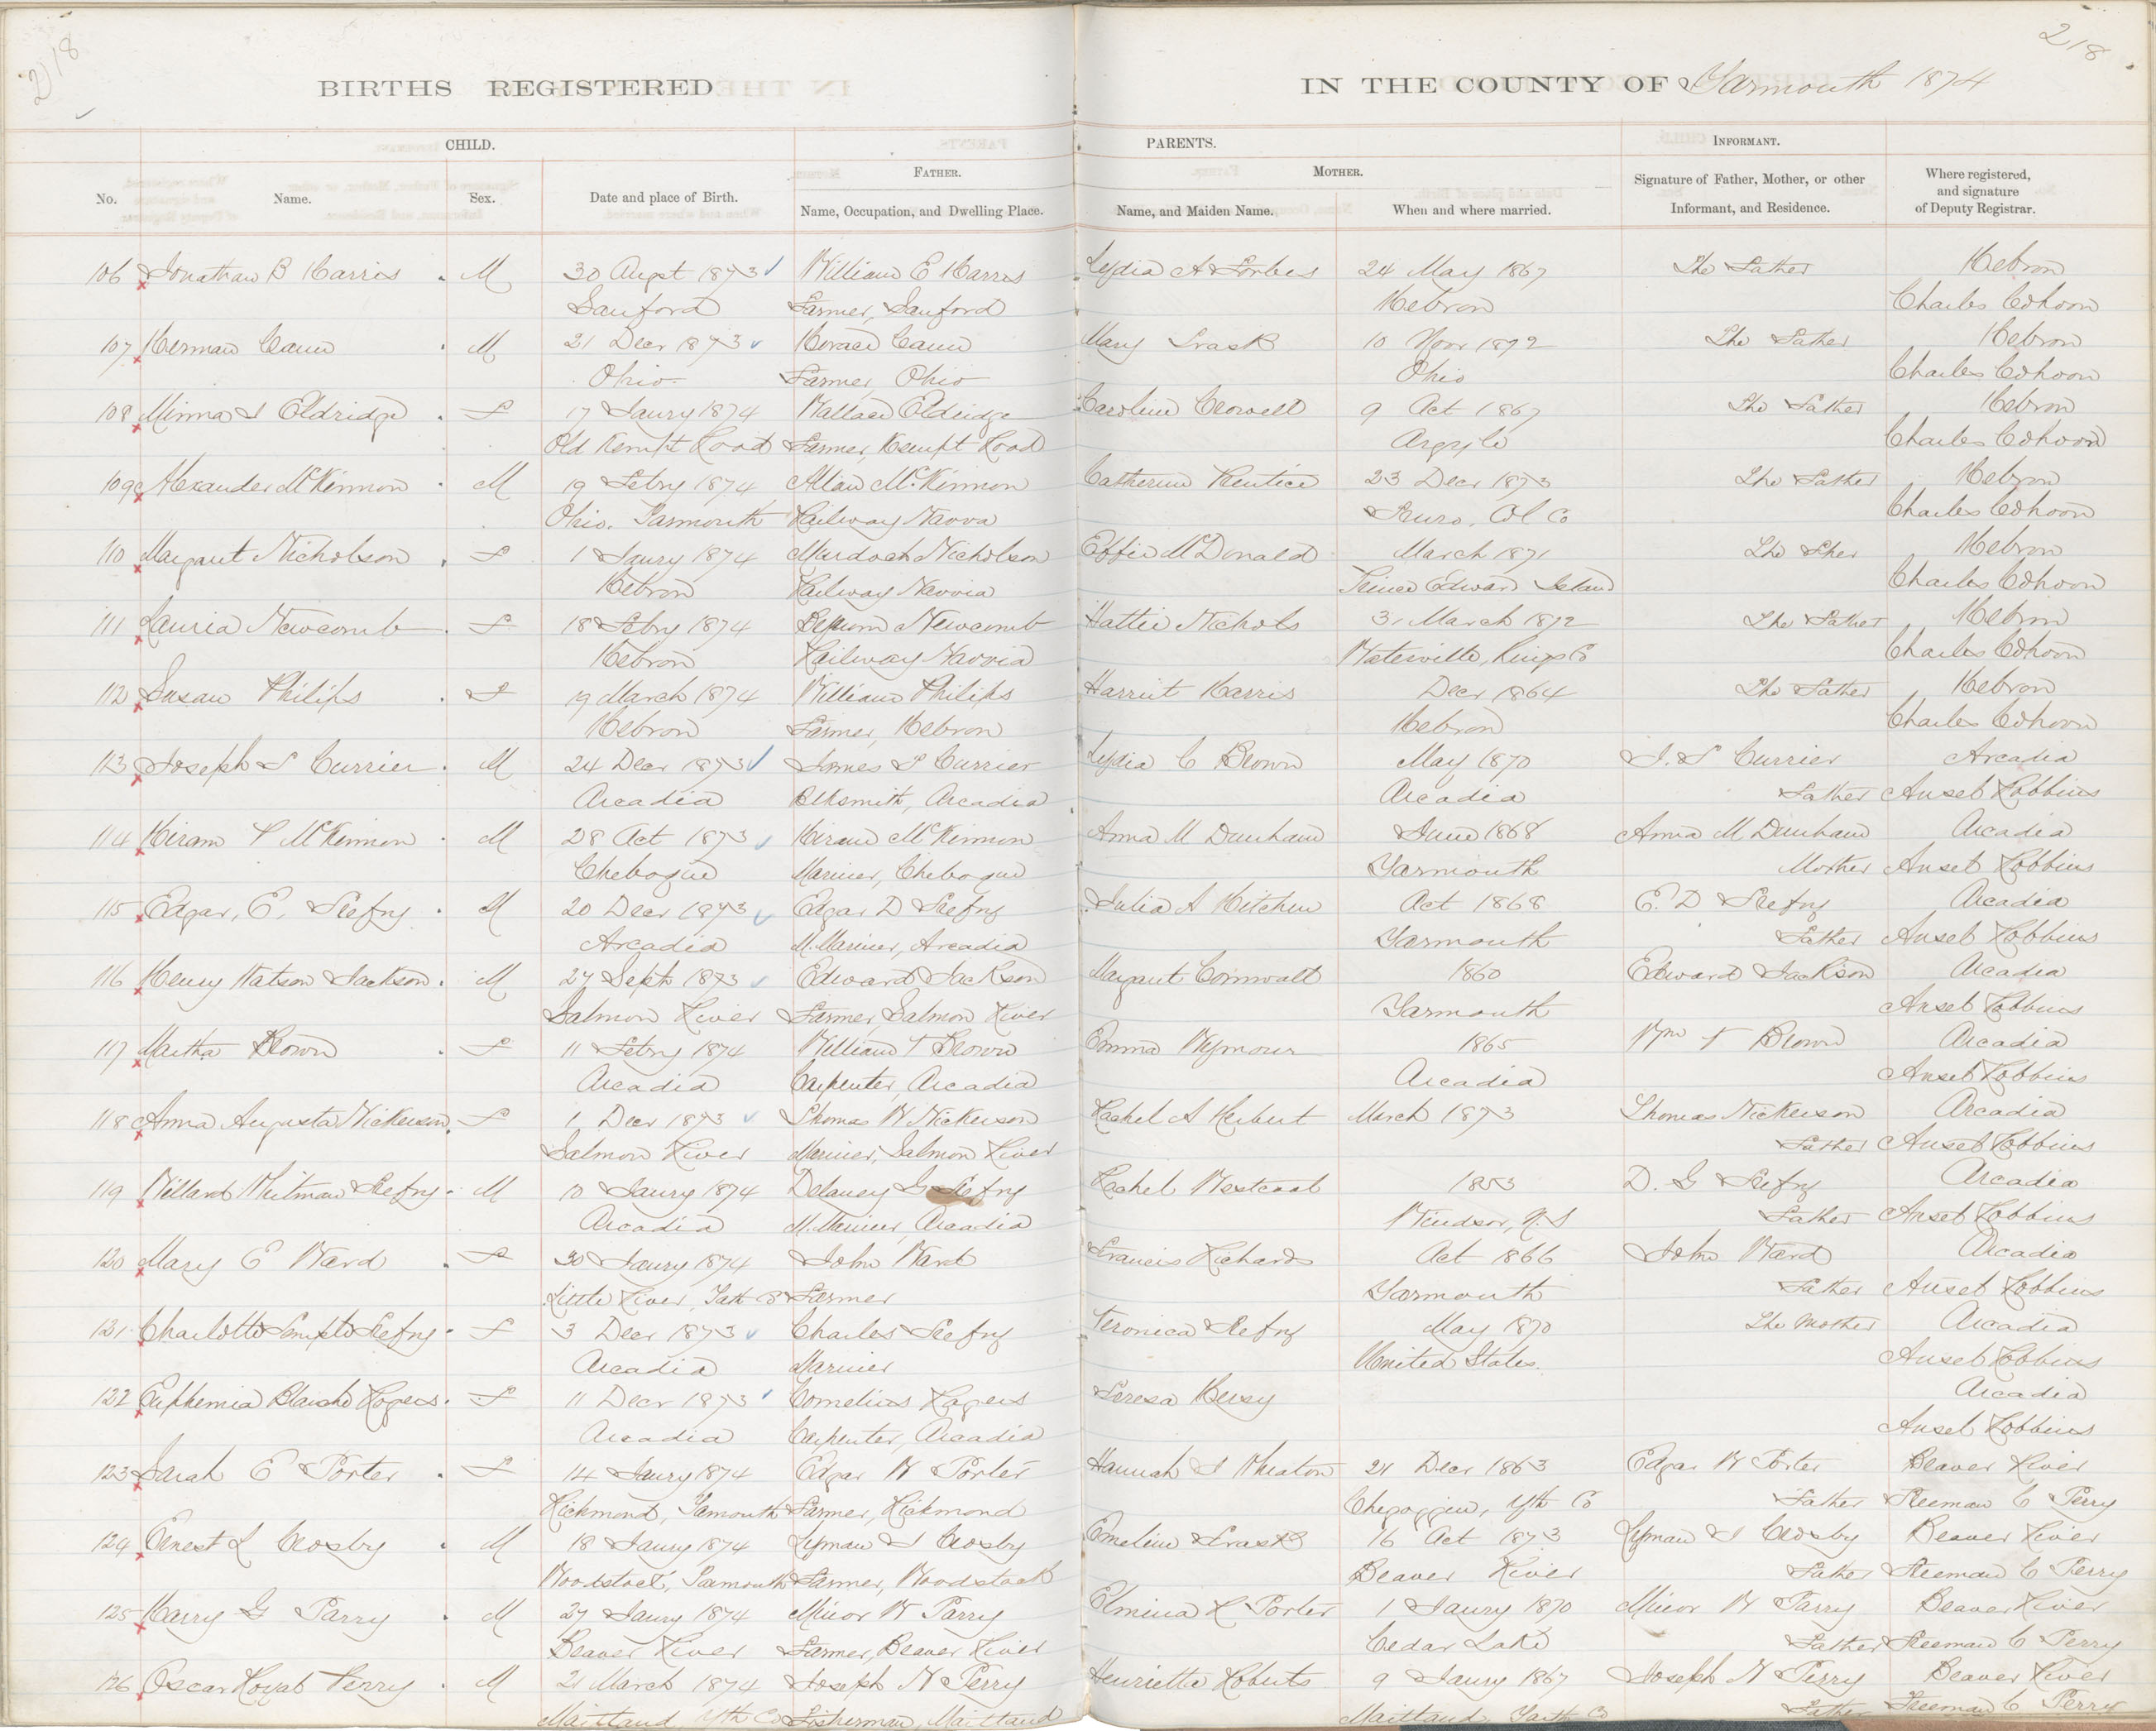 218
218
BIRTHS REGISTERED
IN THE COUNTY OF Yarmouth 1874
CHILD.
PARENTS.
INFORMANT.
No.
Name.
Sex.
Date and place of Birth.
FATHER.
Name, Occupation, and Dwelling Place.
MOTHER.
Name, and Maiden Name.
When and where married.
Signature of Father, Mother, or other Informant, and Residence.
Where registered, and signature of Deputy Registrar.
106 Jonathan B Harris M 30 Augst 1873 William E Harris Lydia A Forbes 24 May 1867 The Father Hebron
Sanford Farmer, Sanford Hebron Charles Cohoon
107 Herman Cann M 21 Decr 1873 Horace Cann Mary Trask 10 Novr 1872 The Father Hebron
Ohio Farmer, Ohio Ohio Charles Cohoon
108 Minna I Eldridge F 17 Jaury 1874 Wallace Eldridge Caroline Crowell 9 Oct 1867 The Father Hebron
Old Kempt Road Farmer, Kempt Road Argyle Charles Cohoon
109 Alexander McKinnon M 19 Febry 1874 Allan McKinnon Catherine Prentice 23 Decr 1873 The Father Hebron
Ohio, Yarmouth Railway Navva Truro, Col Co Charles Cohoon
110 Margaret Nicholson F 1 Jaury 1874 Murdoch Nicholson Effie McDonald March 1871 The Fher Hebron
Hebron Railway Navvia Prince Edward Island Charles Cohoon
111 Lauria Newcomb F 18 Febry 1874 Newcomb Hattie Nichols 31 March 1872 The Father Hebron
Hebron Railway Navvia Waterville, Kings Co Charles Cohoon
112 Susan Philips F 19 March 1874 William Philips Harriet Harris Decr 1864 The Father Hebron
Hebron Farmer, Hebron Hebron Charles Cohoon
113 Joseph S Currier M 24 Decr 1873 James S Currier Lydia C Brown May 1870 J. S Currier Arcadia
Arcadia Blksmith, Arcadia Arcadia Father Ansel Robbins
114 Hiram P McKinnon M 28 Oct 1873 Hiram McKinnon Anna M Dunham June 1868 Anna M Dunham Arcadia
Chebogue Mariner, Chebogue Yarmouth Mother Ansel Robbins
115 Edgar, E, Trefry M 20 Decr 1873 Edgar D Trefry Julia A Hitchen Oct 1868 E. D Trefry Arcadia
Arcadia M. Mariner, Arcadia Yarmouth Father Ansel Robbins
116 Henry Watson Jackson M 27 Sept 1873 Edward Jackson Margaret Cornwall 1860 Edward Jackson Arcadia
Salmon River Farmer, Salmon River Yarmouth Ansel Robbins
117 Martha Brown F 11 Febry 1874 William T Brown Emma Weymour 1865 Wm T Brown Arcadia
Arcadia Carpenter, Arcadia Arcadia Ansel Robbins
118 Anna Augusta Nickerson F 1 Decr 1873 Thomas W Nickerson Rachel A Herbert March 1873 Thomas Nickerson Arcadia
Salmon River Mariner, Salmon River Father Ansel Robbins
119 Willard Whitman Trefry M 10 Jaury 1874 Delaney G Trefry Rachel Westcoat 1853 D. G Trefry Arcadia
Arcadia M. Mariner, Arcadia Windsor, N.S Father Ansel Robbins
120 Mary E Ward F 30 Jaury 1874 John Ward Francis Richards Oct 1866 John Ward Arcadia
Little River, Yath Co Farmer Yarmouth Father Ansel Robbins
121 Charlotte Temple Trefry F 3 Decr 1873 Charles Trefry Veronica Trefry May 1870 The Mother Arcadia
Arcadia Mariner United States. Ansel Robbins
122 Euphemia Blanche Rogers F 11 Decr 1873 Cornelius Rogers Teresa Arcadia
Arcadia Carpenter, Arcadia Ansel Robbins
123 Sarah E Porter F 14 Jaury 1874 Edgar W Porter Hannah I Wheaton 21 Decr 1863 Edgar W Porter Beaver River
Richmond, Yarmouth Farmer, Richmond Chegoggin, Yth Co Father Freeman C Perry
124 Ernest L Crosby M 18 Jaury 1874 Lyman S Crosby Emeline Trask 16 Oct 1873 Lyman S Crosby Beaver River
Woodstock, Yarmouth Farmer, Woodstock Beaver River Father Freeman C Perry
125 Harry G Parry M 27 Jaury 1874 Minor W Parry Elmina R Porter 1 Jaury 1870 Minor W Parry Beaver River
Beaver River Farmer, Beaver River Cedar Lake Father Freeman C Perry
126 Oscar Royal Perry M 21 March 1874 Joseph N Perry Henrietta Roberts 9 Jaury 1867 Joseph N Perry Beaver River
Maitland, Yth Co Fisherman, Maitland Maitland, Yarth Co Father Freeman C Perry